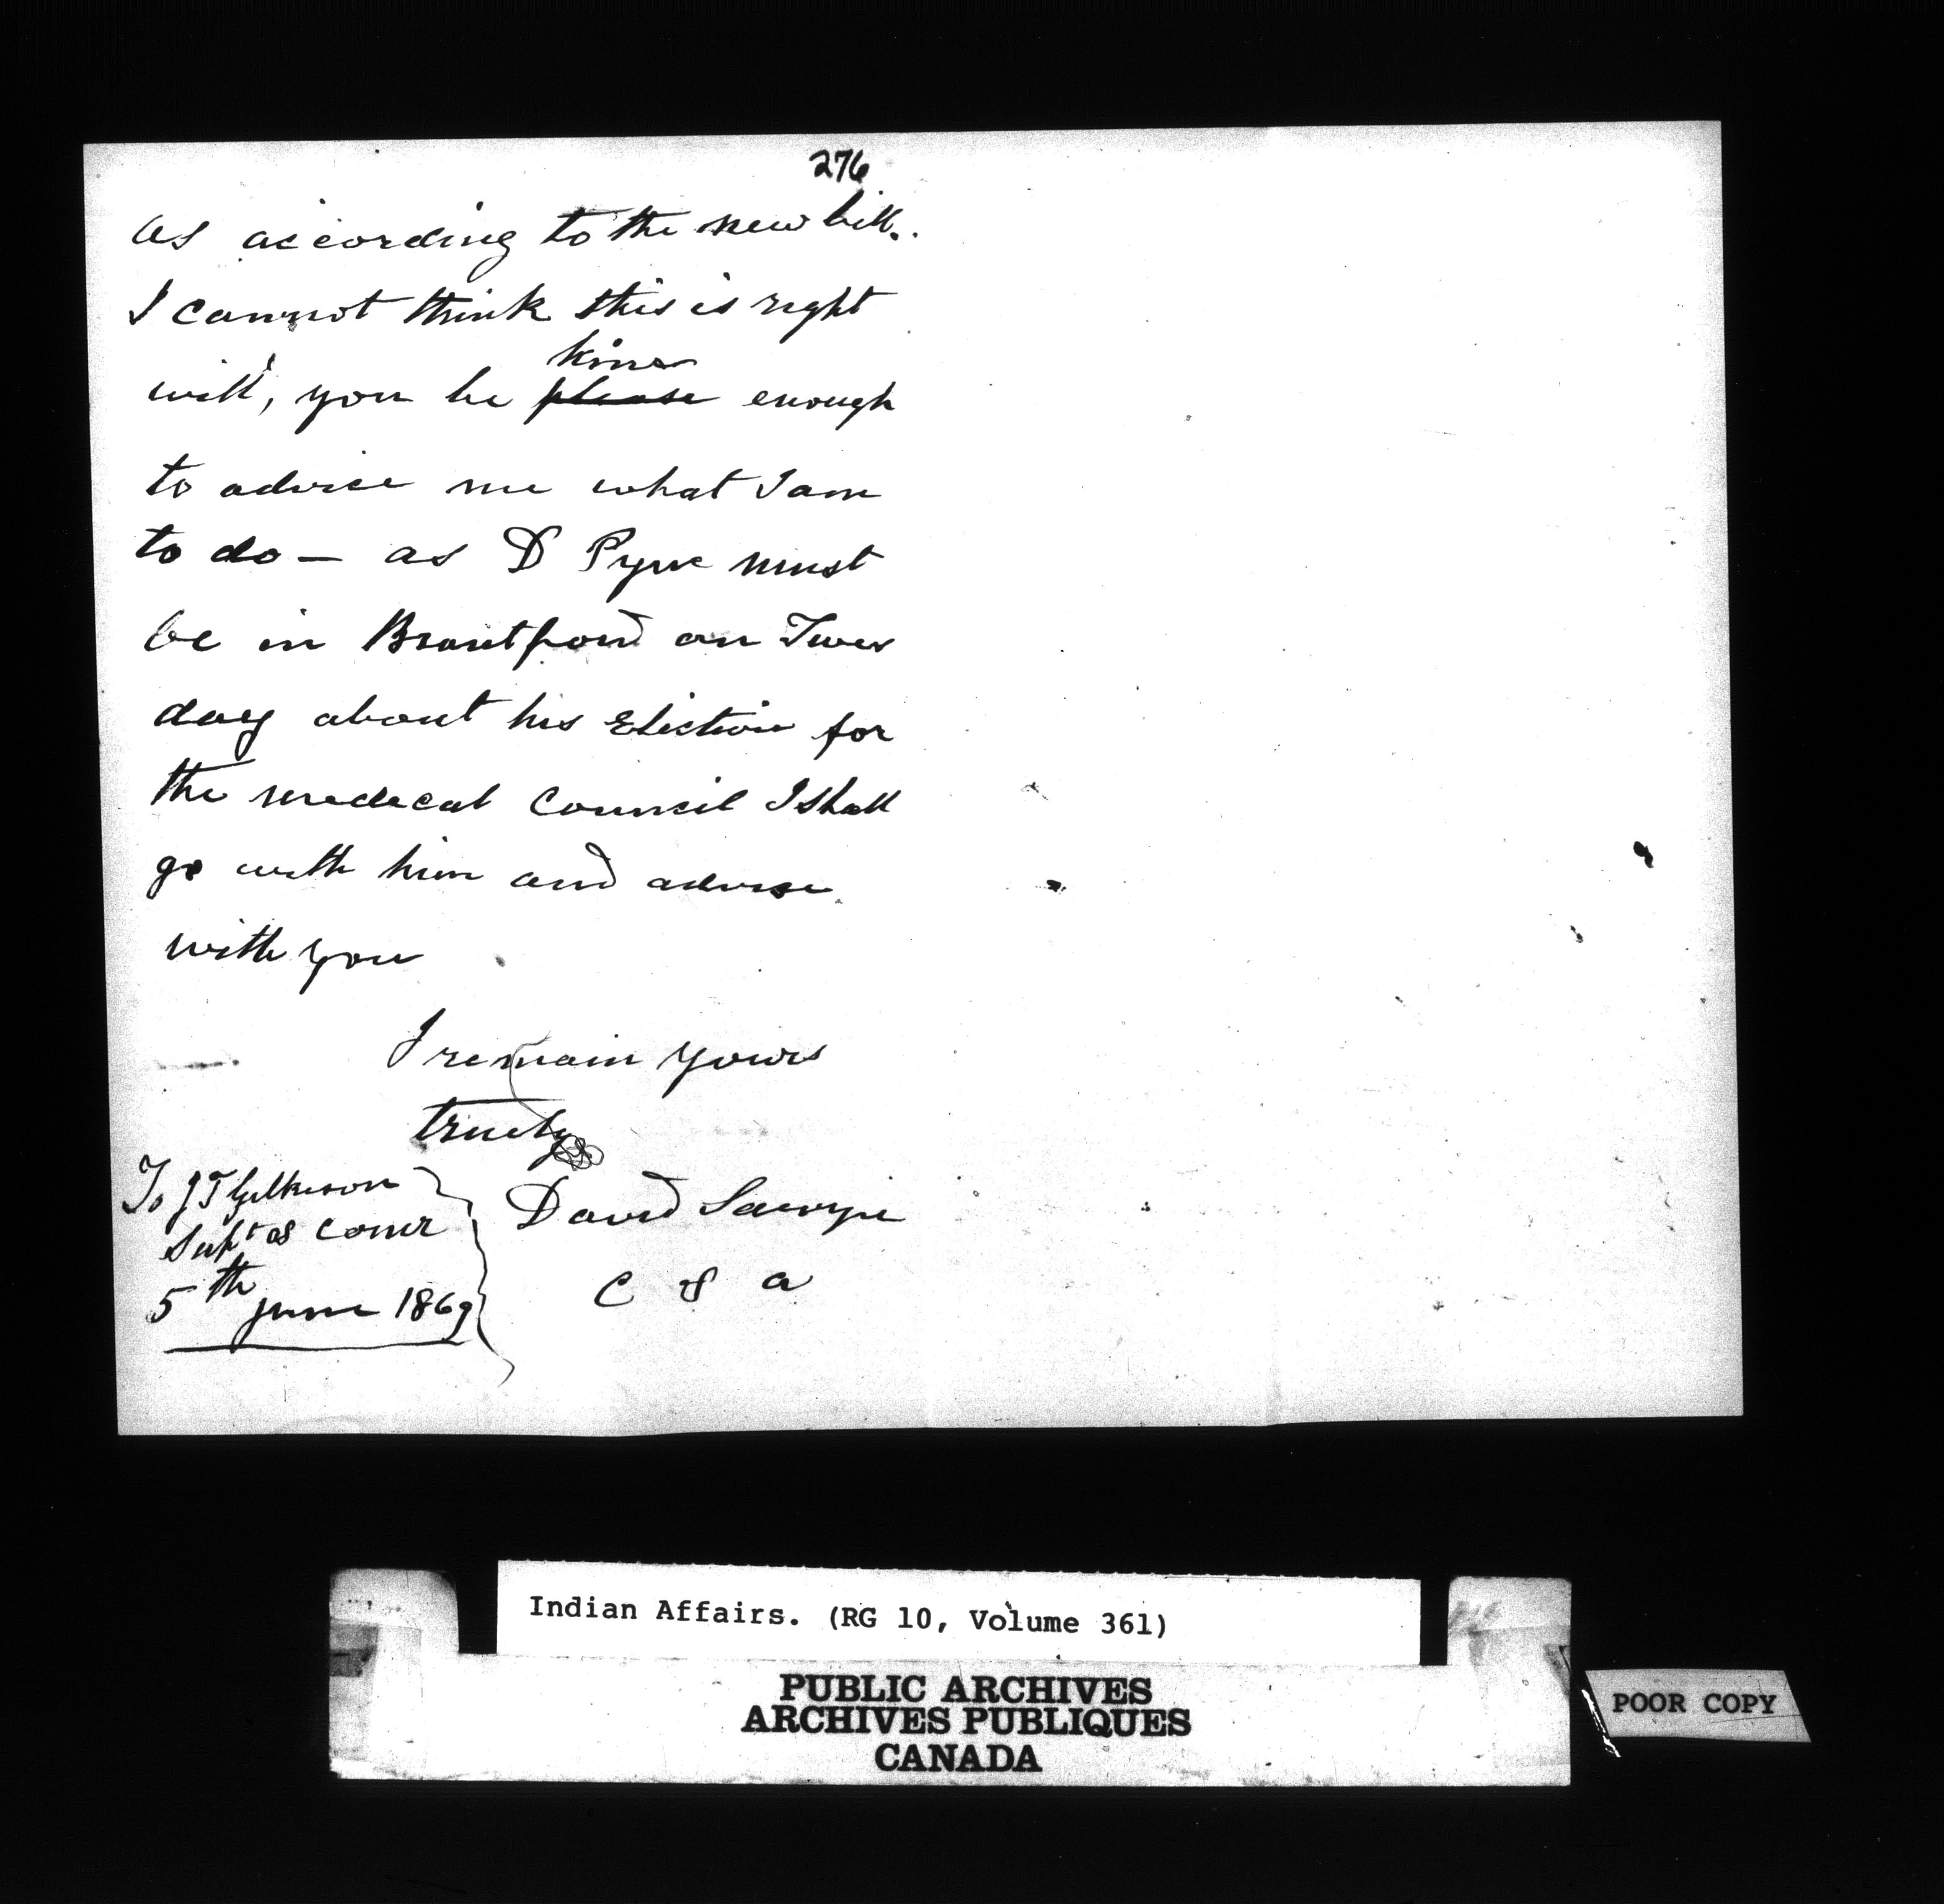 276
as according to the new bill.
I cannot think this is right
kind
will, you be please enough
to advice me what I am
to do — as D Pyne must
be in Brantford on Tues
day about his Election for
the medecal Council I shall
go with him and advise
with you
I remain yours
truely
To J T Gilkison
Supt & Comr
5th June 1869
David Sawyer
C & a
Indian Affairs. (RG 10, Volume 361)
PUBLIC ARCHIVES
ARCHIVES PUBLIQUES
CANADA
POOR COPY